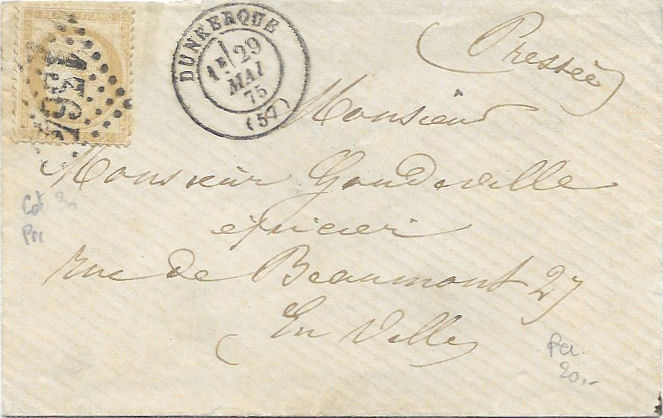 1364
DUNKERQUE
1E/ 29
MAI
75
(57)
(Pressée)
Monsieur
Monsieur Goudeville
épicier
rue de Beaumont 27
En Ville
Cot 30
Pri
Pci.
20.-